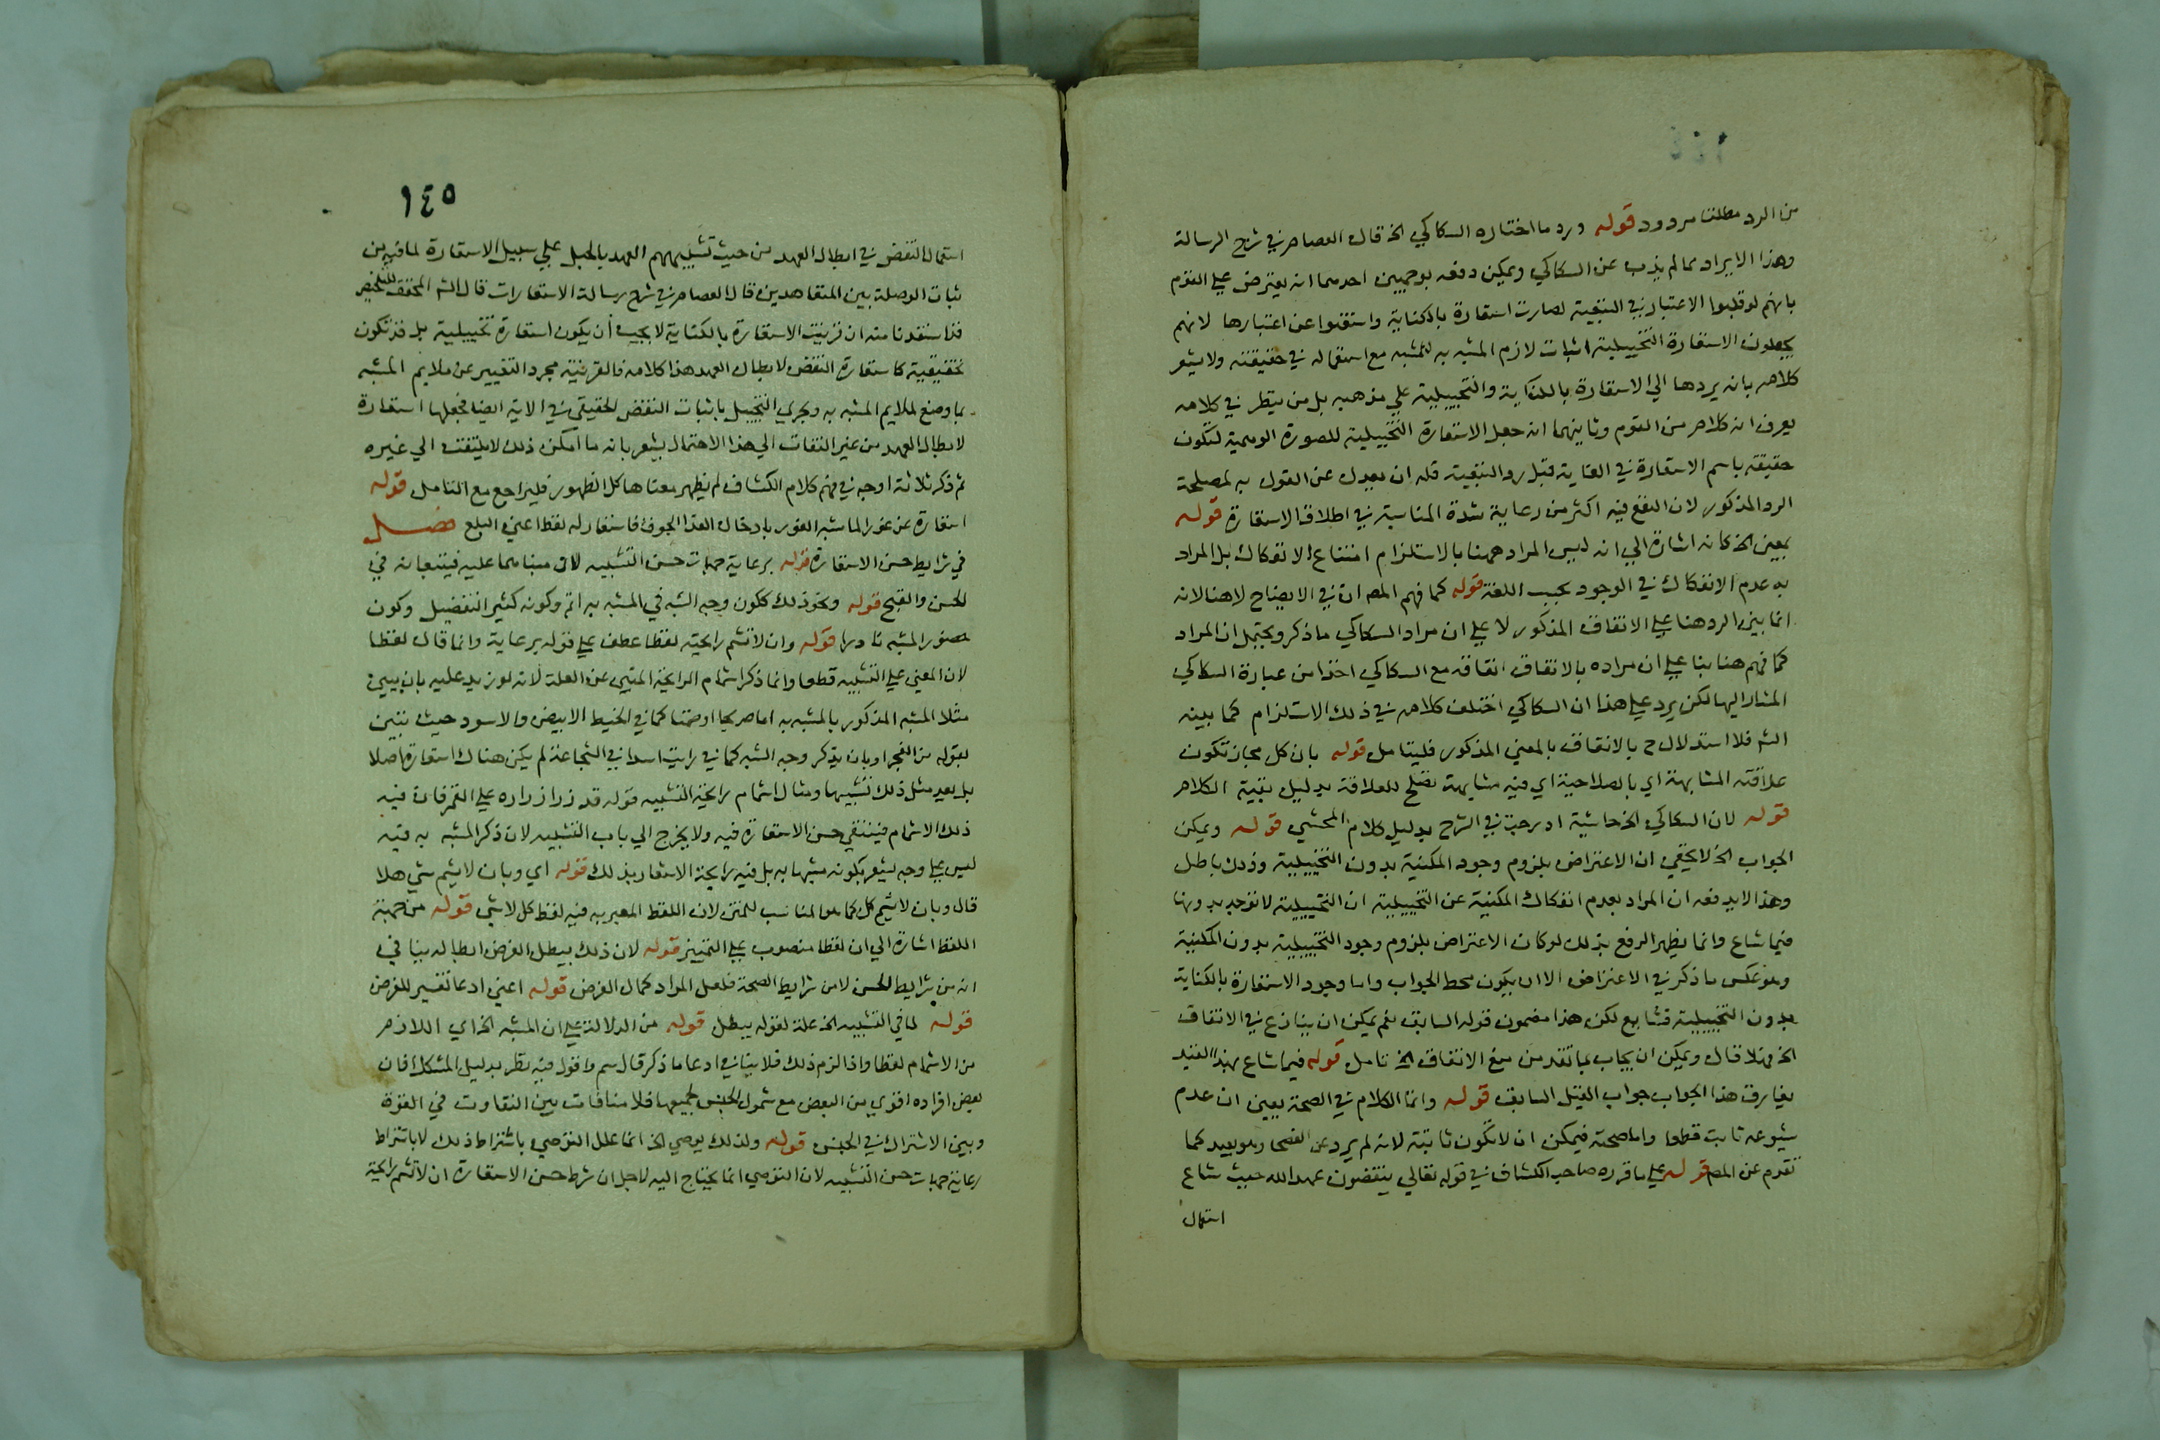 من الرد مطلقا مردود قوله ورد ما اختاره السكاكي الخ قال العصام في شرح الرسالة
وهذا الايراد مما لم يذب عن السكاكي ويمكن دفعه بوجهين احدهما انه يعترض علي القوم
بانهم لو قلبوا الاعتبار في التبعية لصارت استعارة بالكناية واستغنوا عن اعتبارها لانهم
يجعلون الاستعارة التخييلية اثبات لازم المشبه به للمشبه مع استعماله في حقيقته ولا يشعر
كلامه بانه يردها الي الاستعارة بالكناية والتخييلية علي مذهبه بل من ينظر في كلامه
يعرف انه كلام من القوم وثانيهما انه جعل الاستعارة التخييلية للصورة الوهمية لتكون
حقيقة باسم الاستعارة في الغاية قبل رد التبعية فله ان يعدل عن القول به لمصلحة
الرد المذكور لان النفع فيه اكثر من رعاية شدة المناسبة في اطلاق الاستعارة قوله
بمعني الخ كانه اشارة الي انه ليس المراد ههنا بالاستلزام امتناع الانفكاك بل المراد
به عدم الانفكاك في الوجود بحسب اللغة قوله كما فهم المص ان في الايضاح لاهنا لانه
انما بين الرد هنا علي الاتفاق المذكور لا علي ان مراد السكاكي ما ذكر ويحتمل ان المراد
كما فهم هنا بنا علي ان مراده بالاتفاق اتفاقه مع السكاكي اخذا من عبارة السكاكي
المشار اليها لكن يرد علي هذا ان السكاكي اختلف كلامه في ذلك الاستلزام كما بينه
الش فلا استدلال ح بالاتفاق بالمعني المذكور فليتامل قوله بان كل مجاز تكون
علاقته المشابهة اي بالصلاحية اي فيه مشابهة تصلح للعلاقة بدليل بقية الكلام
قوله لان السكاكي الخ حاشية ادرجت في الشرح بدليل كلام المحشي قوله ويمكن
الجواب الخ لا يخفي ان الاعتراض بلزوم وجود المكنية بدون التخييلية وذلك باطل
وهذا لا يدفعه ان المراد بعدم انفكاك المكنية عن التخييلية ان التخييلية لا توجد بدونها
فيما شاع وانما يظهر الرفع بذلك لو كان الاعتراض بلزوم وجود التخييلية بدون المكنية
وهو عكس ما ذكر في الاعتراض الا ان يكون محط الجواب واما وجود الاستعارة بالكناية
بدون التخييلية فشايع لكن هذا مضمون قوله السابق نعم يمكن ان ينازع في الاتفاق
الخ فهلا قال ويمكن ان يجاب بما تقدم من منع الاتفاق الخ تامل قوله فيما شاع بهذا القيد
يفارق هذا الجواب جواب القيل السابق قوله وانما الكلام في الصحة يعين ان عدم
شيوعه ثابت قطعا واما صحته فيمكن ان لا تكون ثابتة لانه لم يرد عن الفصحا وهو بعيد كما
تقدم عن المص قوله علي ما قرره صاحب الكشاف في قوله تعالي ينقضون عهد الله حيث شاع
استعمال
١٤٥
استعمال النقض في ابطال العهد من حيث تشبيههم العهد بالحبل علي سبيل الاستعارة لما فيه من
ثبات الوصلة بين المتعاهدين قال العصام في شرح رسالة الاستعارات قال الش المحقق للتلخيص
قد استفدنا منه ان قرينة الاستعارة بالكناية لا يجب أن يكون استعارة تخييلية بل قد تكون
تحقيقية كاستعارة النقض لابطال العهد هذا كلامه فالقرينة مجرد التعبير عن ملايم المشبه
بما وضع لملايم المشبه به ويجري التخييل باثبات النقض الحقيقي في الاية ايضا فجعلها استعارة
لابطال العهد من غير التفات الي هذا الاحتمال يشعر بانه ما امكن ذلك لا يلتفت الي غيره
ثم ذكر ثلاثة اوجه في فهم كلام الكشاف لم يظهر معناها كل الظهور فليراجع مع التامل قوله
استعارة عن غور الما شبه الغور بادخال الغذا الجوف فاستعار له لفظ اعني البلع فصل
في شرايط حسن الاستعارة قوله برعاية جهات حسن التشبيه لان مبناهما عليه فيتبعانه في
الحسن والقبح قوله ونحو ذلك ككون وجه الشبه في المشبه به اتم وكونه كثير التفصيل وكون
حضور المشبه نادرا قوله وان لا تشم رايحته لفظا عطف علي قوله برعاية وانما قال لفظا
لان المعني علي التشبيه قطعا وانما ذكر اشمام الرايحة المنبي عن القلة لانه لو زيد عليه بان يبين
مثلا المشبه المذكور بالمشبه به اما صريحا او ضمنا كما في الخيط الابيض والاسود حيث بين
بقوله من الفجر او بان يذكر وجه الشبه كما في رايت اسدا في الشجاعة لم يكن هناك استعارة اصلا
بل يعد مثل ذلك تشبيها ومثال اشمام رايحة التشبيه قوله قد زر ازراره علي القمر فان فيه
ذلك الاشمام فينتفي حسن الاستعارة فيه ولا يخرج الي باب التشبيه لان ذكر المشبه به فيه
ليس علي وجه يشعر بكونه مشبها به بل فيه رايحة الاشعار بذلك قوله اي وبان لا يشم شي هلا
قال وبان لا تشم كل كما هو المناسب للمتن لان اللفظ المعبر به فيه لفظ كل لا شي قوله من جهة
اللفظ اشارة الي ان لفظا منصوب علي التمييز قوله لان ذلك يبطل الغرض ابطاله ينافي
انه من شرايط الحسن لا من شرايط الصحة فلعل المراد كمال الغرض قوله اعني ادعا تفسير للغرض
قوله لما في التشبيه الخ علة لقوله يبطل قوله من الدلالة علي ان المشبه الخ اي اللازم
من الاشمام لفظا واذا لزم ذلك فلا ينافي ادعا ما ذكر قال سم واقول فيه نظر بدليل المشكك فان
بعض افراده اقوي من البعض مع شمول الجنس لجميعها فلا منافات بين التفاوت في القوة
وبين الاشتراك في الجنس قوله ولذلك يوصي الخ انما علل التوصي باشتراط ذلك لا باشتراط
رعاية جهات حسن التشبيه لان التوصي انما يحتاج اليه لاجل ان شرط حسن الاستعارة ان لا تشم رايحة